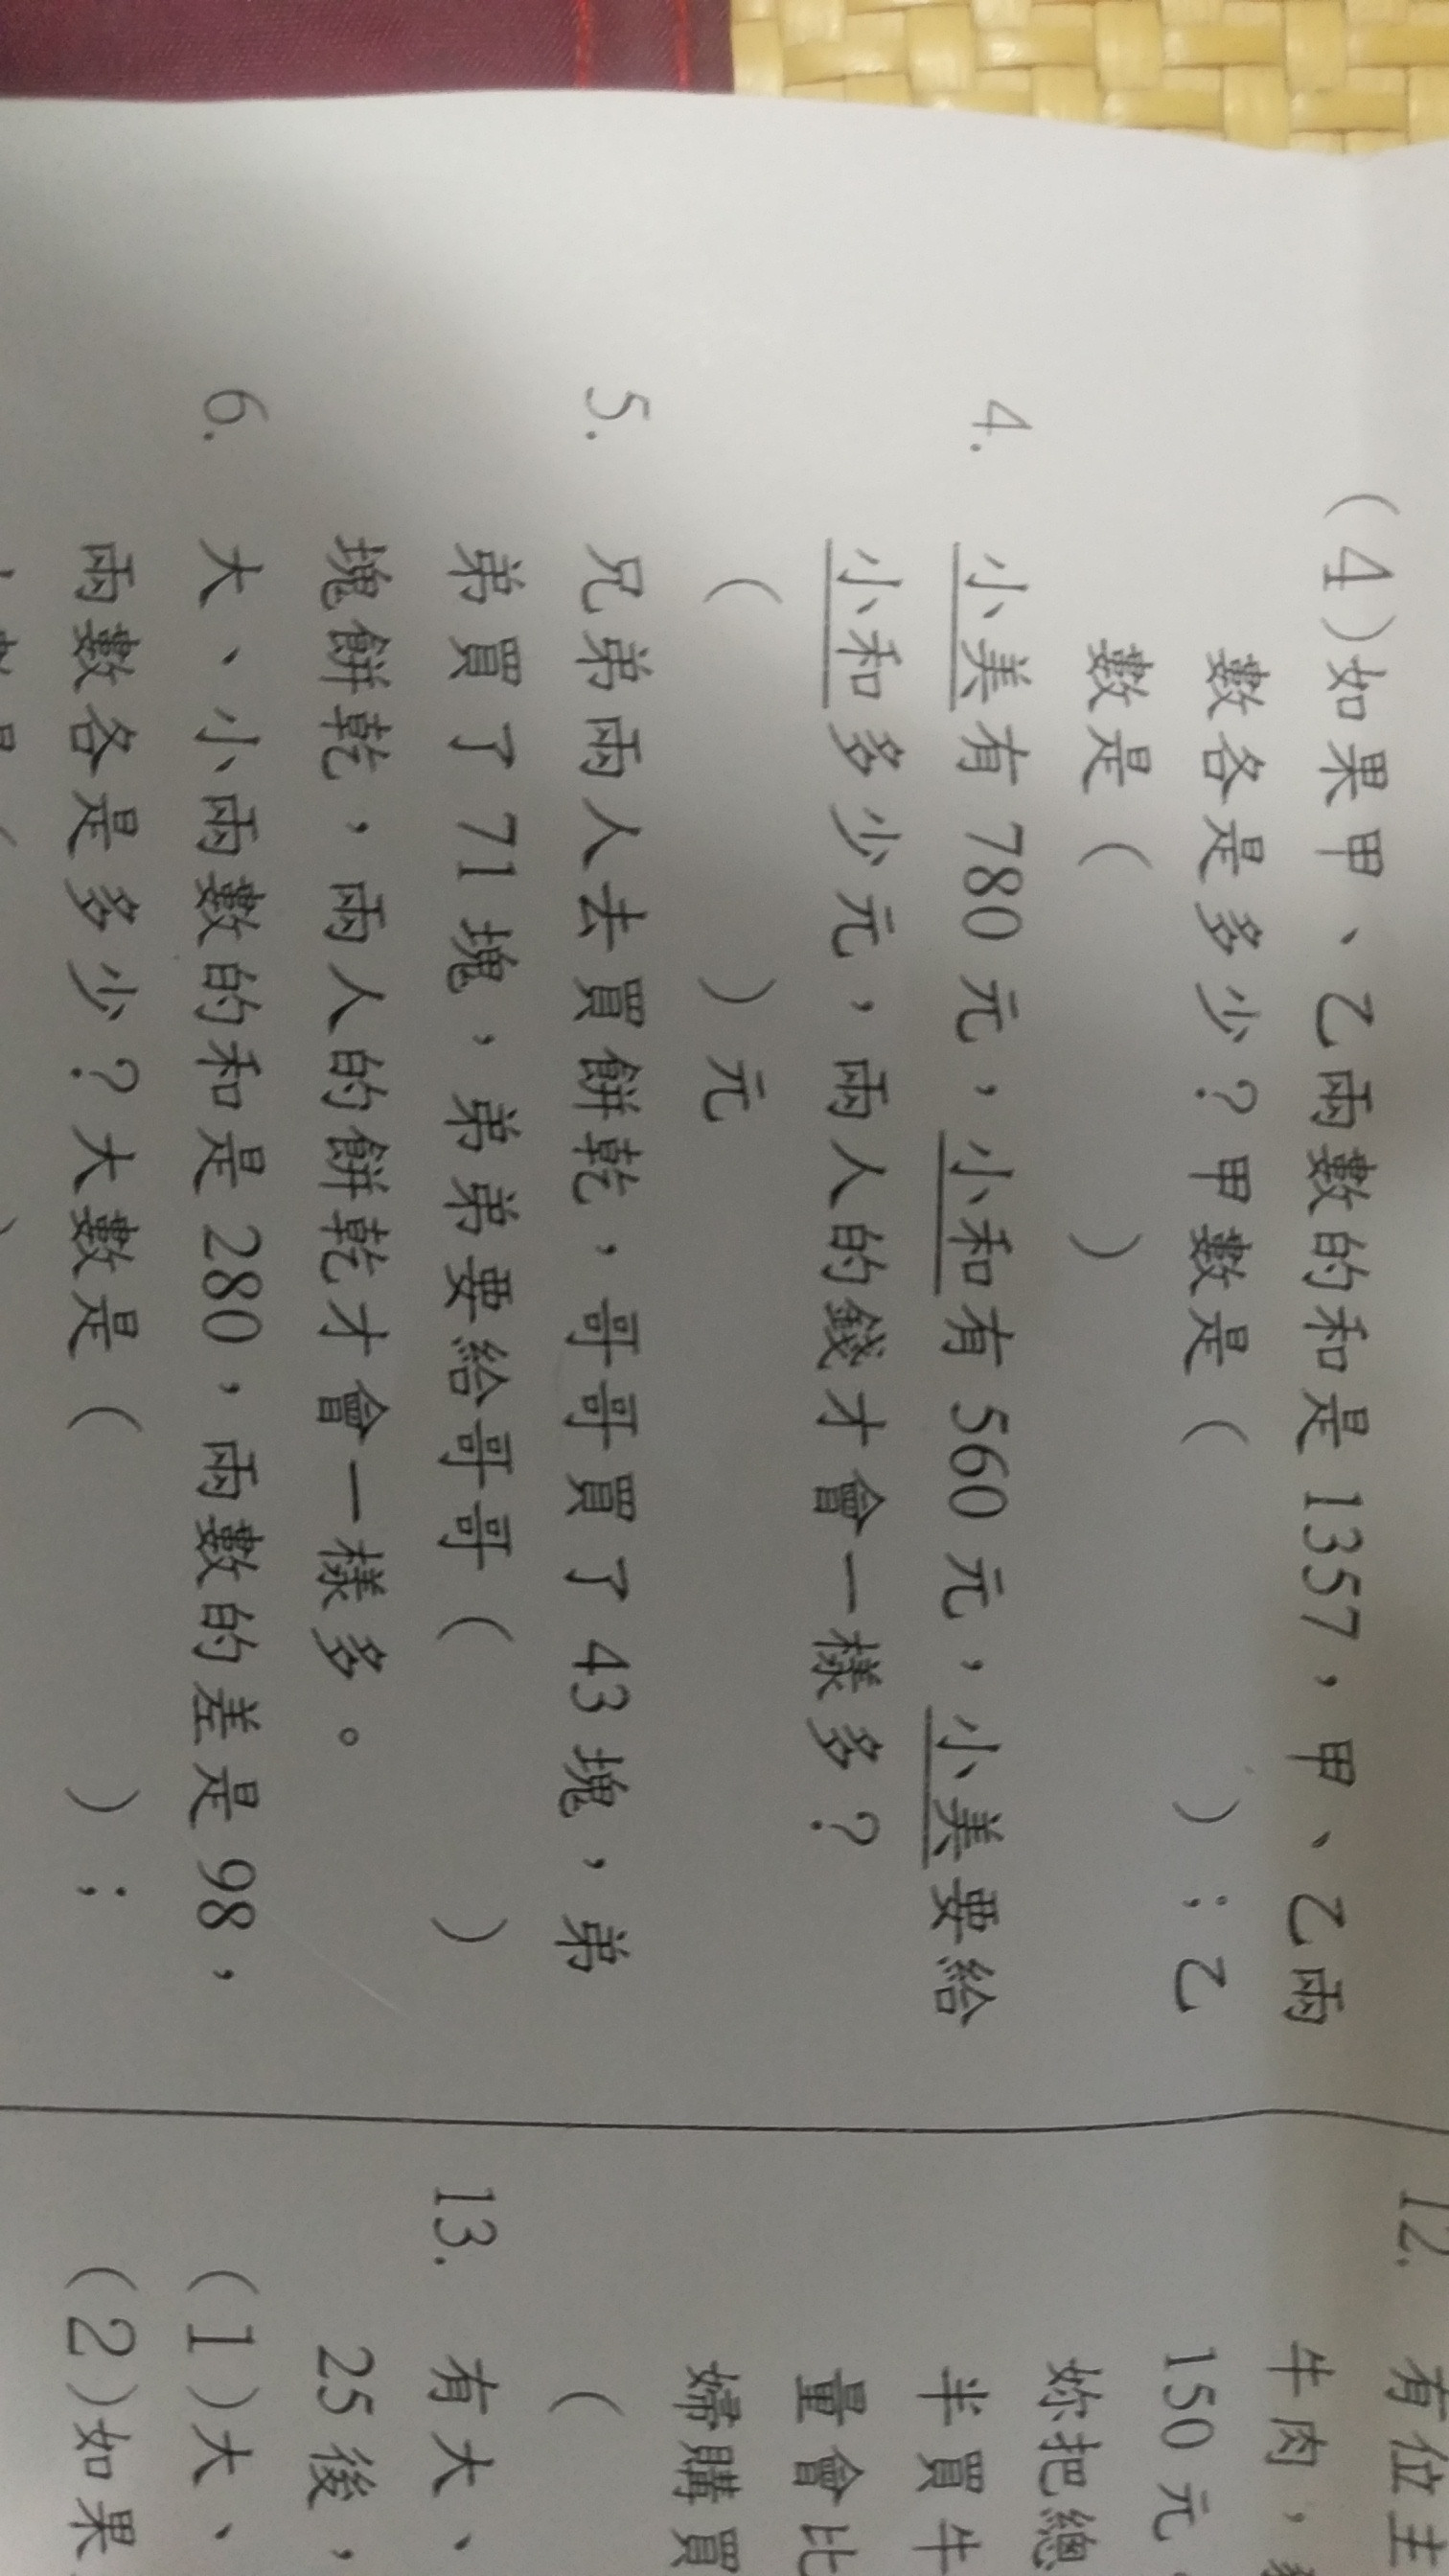 (4)如果甲、乙兩數的和是 1357，甲、乙兩
數各是多少？甲數是（　　　）；乙
數是（　　　）
4. 小美有 780 元，小和有 560 元，小美要給
小和多少元，兩人的錢才會一樣多？
（　　　）元
5. 兄弟兩人去買餅乾，哥哥買了 43 塊，弟
弟買了 71 塊，弟弟要給哥哥（　　　）
塊餅乾，兩人的餅乾才會一樣多。
6. 大、小兩數的和是 280，兩數的差是 98，
兩數各是多少？大數是（　　　）；
12. 有位主
牛肉，
150 元
妳把總
半買牛
量會比
婦購買
（
13. 有大、
25 後，
(1)大、
(2)如果